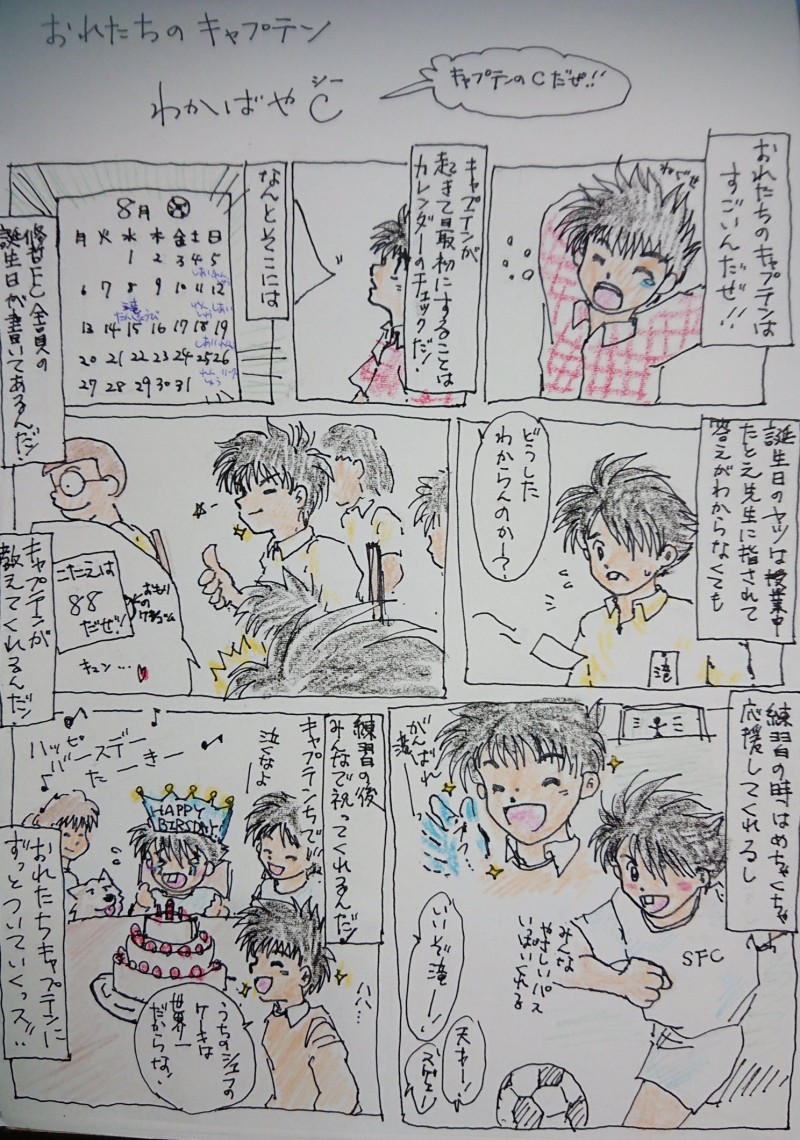 おれたちの キャプテン
わかばや C
シー
キャプテンの C だぜ!!
おれたちのキャプテンは
すごいんだぜ!!
キャプテンが
起きて最初にすることは
カレンダーのチェックだ!
なんとそこには
8月
月 火 水 木 金 土 日
1 2 3 4 5
しあい
6 7 8 9 10 11 12
滝
たんじょうび
しあい
13 14 15 16 17 18 19
20 21 22 23 24 25 26
27 28 29 30 31
修哲FC全員の
誕生日が書いてあるんだ!
誕生日のヤツは授業中
たとえ先生に指されて
答えがわからなくても
どうした
わからんのか?
滝
こたえは
88
だぜ!
キュン…
キャプテンが
教えてくれるんだ!
練習の時はめちゃくちゃ
応援してくれるし
がんばれ
滝
みんな
やさしいパス
いっぱいくれる
SFC
いいぞ滝ー!
天才ー!
スゲェー
練習の後
キャプテンちで
みんなで祝ってくれるんだ!
泣くなよ
ハッピ
バースデー
たーきー
HAPPY
BIRSDAY
ハハ…
うちのシェフの
ケーキは
世界一
だからな!
おれたちキャプテンに
ずっとついていくっス!!